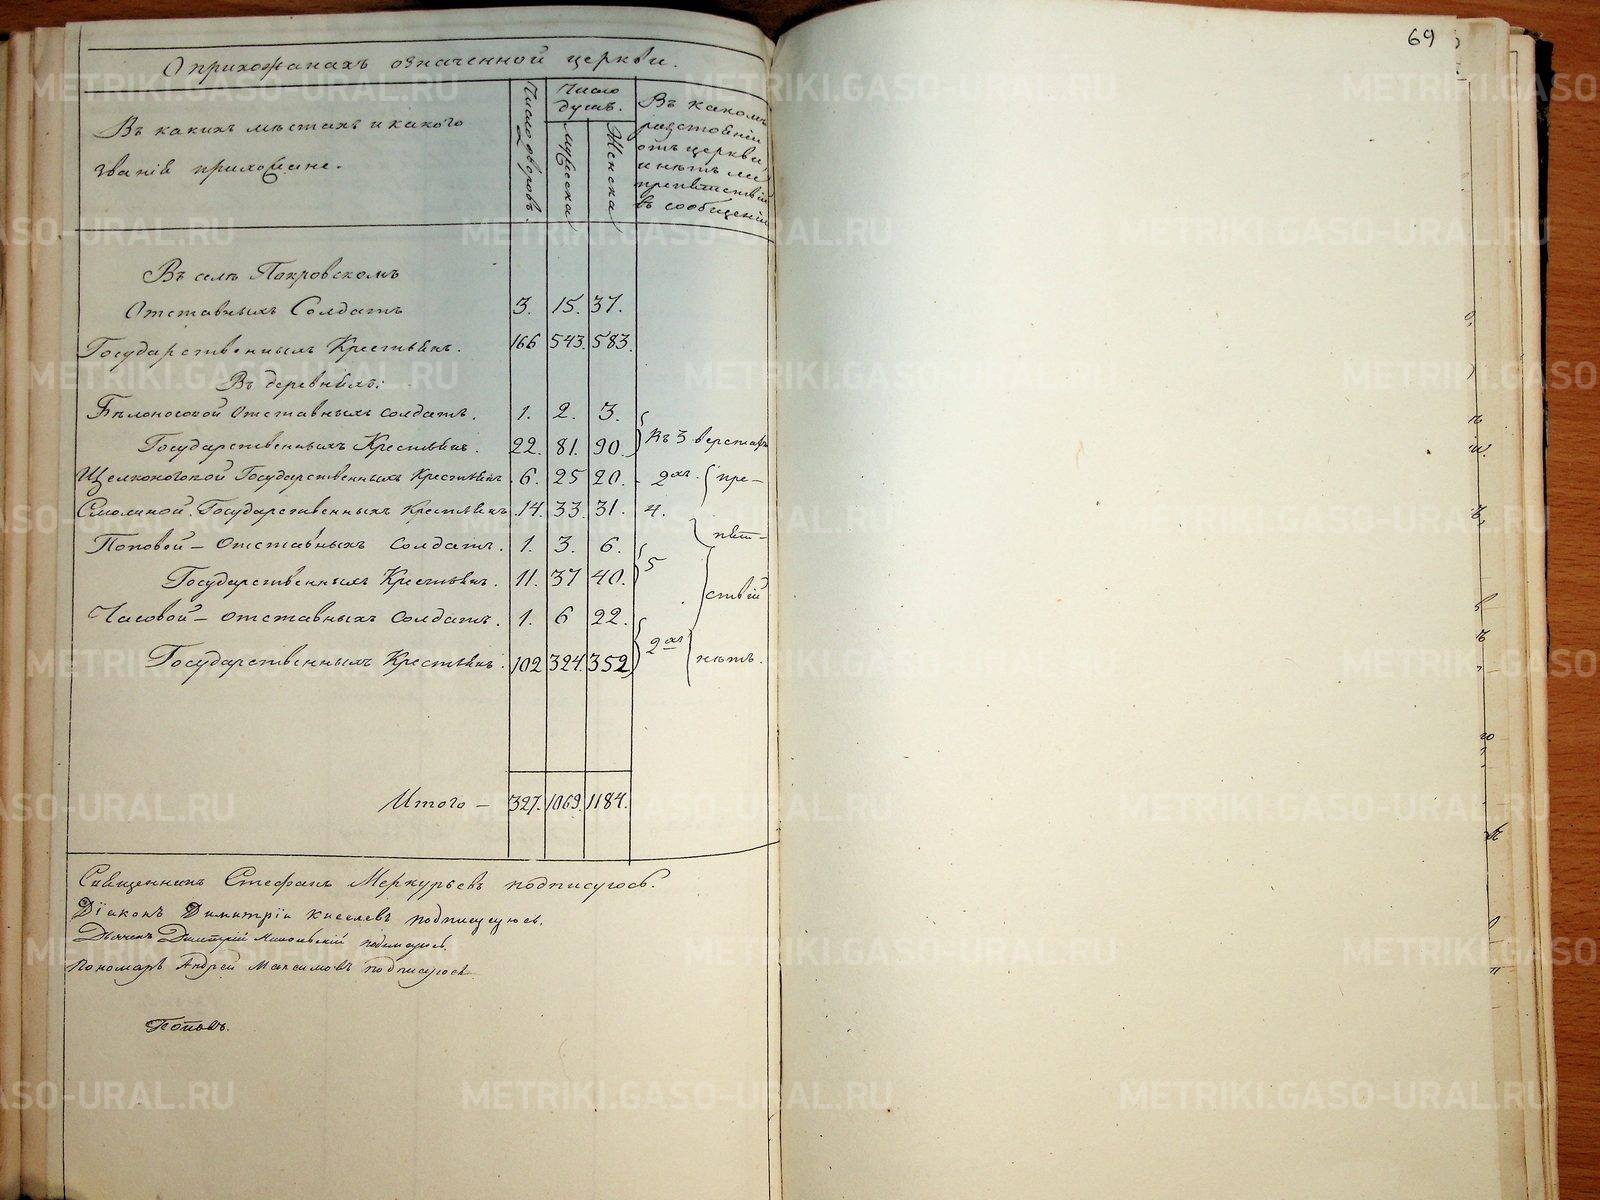 69
О прихожанахъ означенной церкви.
Въ какихъ мѣстахъ и какого
званія прихожане.
Число дворовъ.
Число
душъ.
Мужеска
Женска
Въ какомъ
разстояніи
отъ церкви,
и нѣтъ ли
препятствій
въ сообщеніи
Въ селѣ Покровскомъ
Отставныхъ Солдатъ 3. 15. 37.
Государственныхъ Крестьянъ. 166 543. 583.
Въ деревняхъ:
Бѣлоносовой Отставныхъ солдатъ. 1. 2. 3.
Государственныхъ Крестьянъ. 22. 81. 90. въ 3 верстахъ
Щелконоговой Государственныхъ Крестьянъ 6. 25 20. - 2ахъ. пре-
Смолиной. Государственныхъ Крестьянъ 14. 33. 31. 4.
Поповой - Отставныхъ Солдатъ. 1. 3. 6. пят-
Государственныхъ Крестьянъ. 11. 37 40. 5 ствій
Часовой - отставныхъ Солдатъ. 1. 6 22.
Государственныхъ Крестьянъ. 102 324. 352 2ахъ нѣтъ.
Итого - 327. 1069. 1184.
Священникъ Стефанъ Меркурьевъ подписуюсь.
Діаконъ Димитрій Киселевъ подписуюсь.
Дьячекъ Дмитрій подписуюсь.
Пономарь Андрей Максимовъ подписуюсь
METRIKI.GASO-URAL.RU